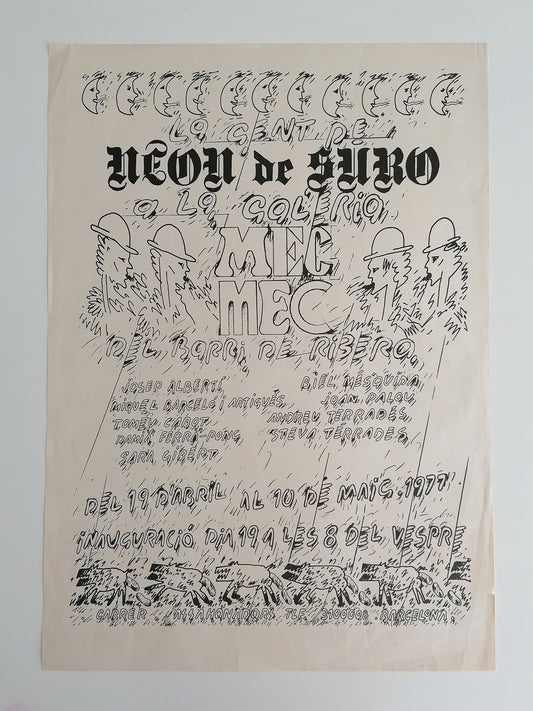 LA GENT DE
NEON de SURO
a LA GALERIA
MEC
MEC
DEL BARRI DE RIBERA
JOSEP ALBERTÍ,
MIQUEL BARCELÓ i ARTIGUES,
TOMEU CABOT,
RAMIX FERRÀ-PONÇ,
SARA GIBERT
BIEL MESQUIDA,
JOAN PALOU,
ANDREU TERRADES,
STEVA TERRADES,
DEL 19 D'ABRIL AL 10 DE MAIG, 1977
iNAUGURACIÓ, DIA 19 A LES 8 DEL VESPRE
CARRER ASSAHONADORS TLF. BARCELONA